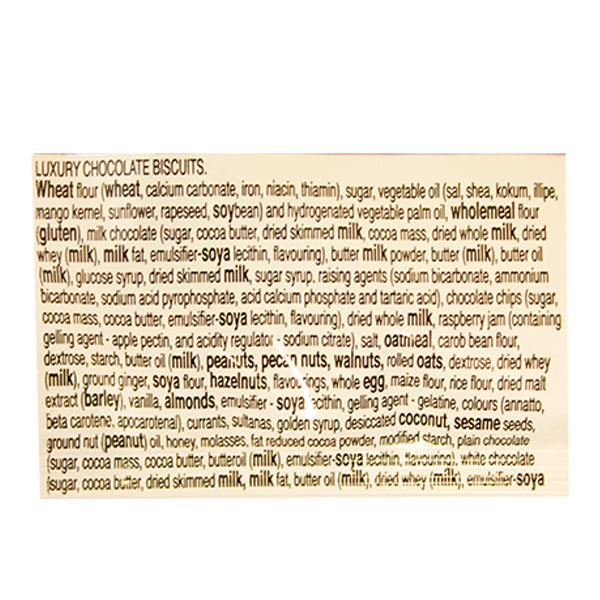 LUXURY CHOCOLATE BISCUITS.
Wheat flour (wheat, calcium carbonate, iron, niacin, thiamin), sugar, vegetable oil (sal, shea, kokum, illipe,
mango kernel, sunflower, rapeseed, soybean) and hydrogenated vegetable palm oil, wholemeal flour
(gluten), milk chocolate (sugar, cocoa butter, dried skimmed milk, cocoa mass, dried whole milk, dried
whey (milk), milk fat, emulsifier-soya lecithin, flavouring), butter milk powder, butter (milk), butter oil
(milk), glucose syrup, dried skimmed milk, sugar syrup. raising agents (sodium bicarbonate, ammonium
bicarbonate, sodium acid pyrophosphate, acid calcium phosphate and tartaric acid), chocolate chips (sugar,
cocoa mass, cocoa butter, emulsifier-soya lecithin, flavouring), dried whole milk, raspberry jam (containing
gelling agent - apple pectin, and acidity regulator - sodium citrate), salt, oatmeal, carob bean flour,
dextrose, starch, butter oil (milk), peanuts, pecan nuts, walnuts, rolled oats, dextrose, dried whey
(milk), ground ginger, soya flour, hazelnuts, flavourings, whole egg, maize flour, rice flour, dried malt
extract (barley), vanilla, almonds, emulsifier - soya lecithin, gelling agent - gelatine, colours (annatto,
beta carotene, apocarotenal), currants, sultanas, golden syrup, desiccated coconut, sesame seeds,
ground nut (peanut) oil, honey, molasses, fat reduced cocoa powder, modified starch, plain chocolate
(sugar, cocoa mass, cocoa butter, butteroil (milk), emulsifier-soya lecithin, flavouring), white chocolate
(sugar, cocoa butter, dried skimmed milk, milk fat, butter oil (milk), dried whey (milk), emulsifier-soya